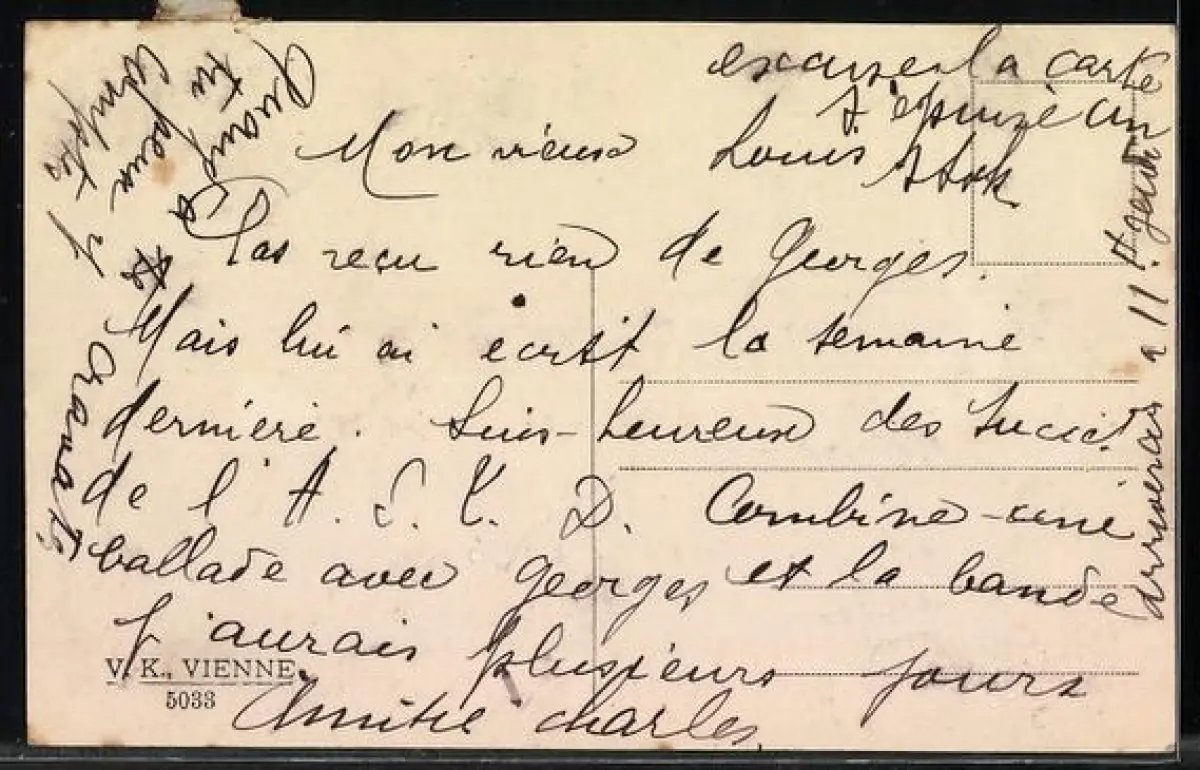 excuse la carte
épuizé un
Mon vieux Louis
stok
Pas reçu rien de Georges.
Mais lui ai écrit la semaine
derniere. Suis heureux des
de l'A. S. V. D. Combine une
ballade avec Georges et la bande
j'aurais plusieurs jours
Amitié Charles.
V. K., VIENNE
5033
Quand
tu peux
comptes y
cravats
arriverais a 11 H jeudi